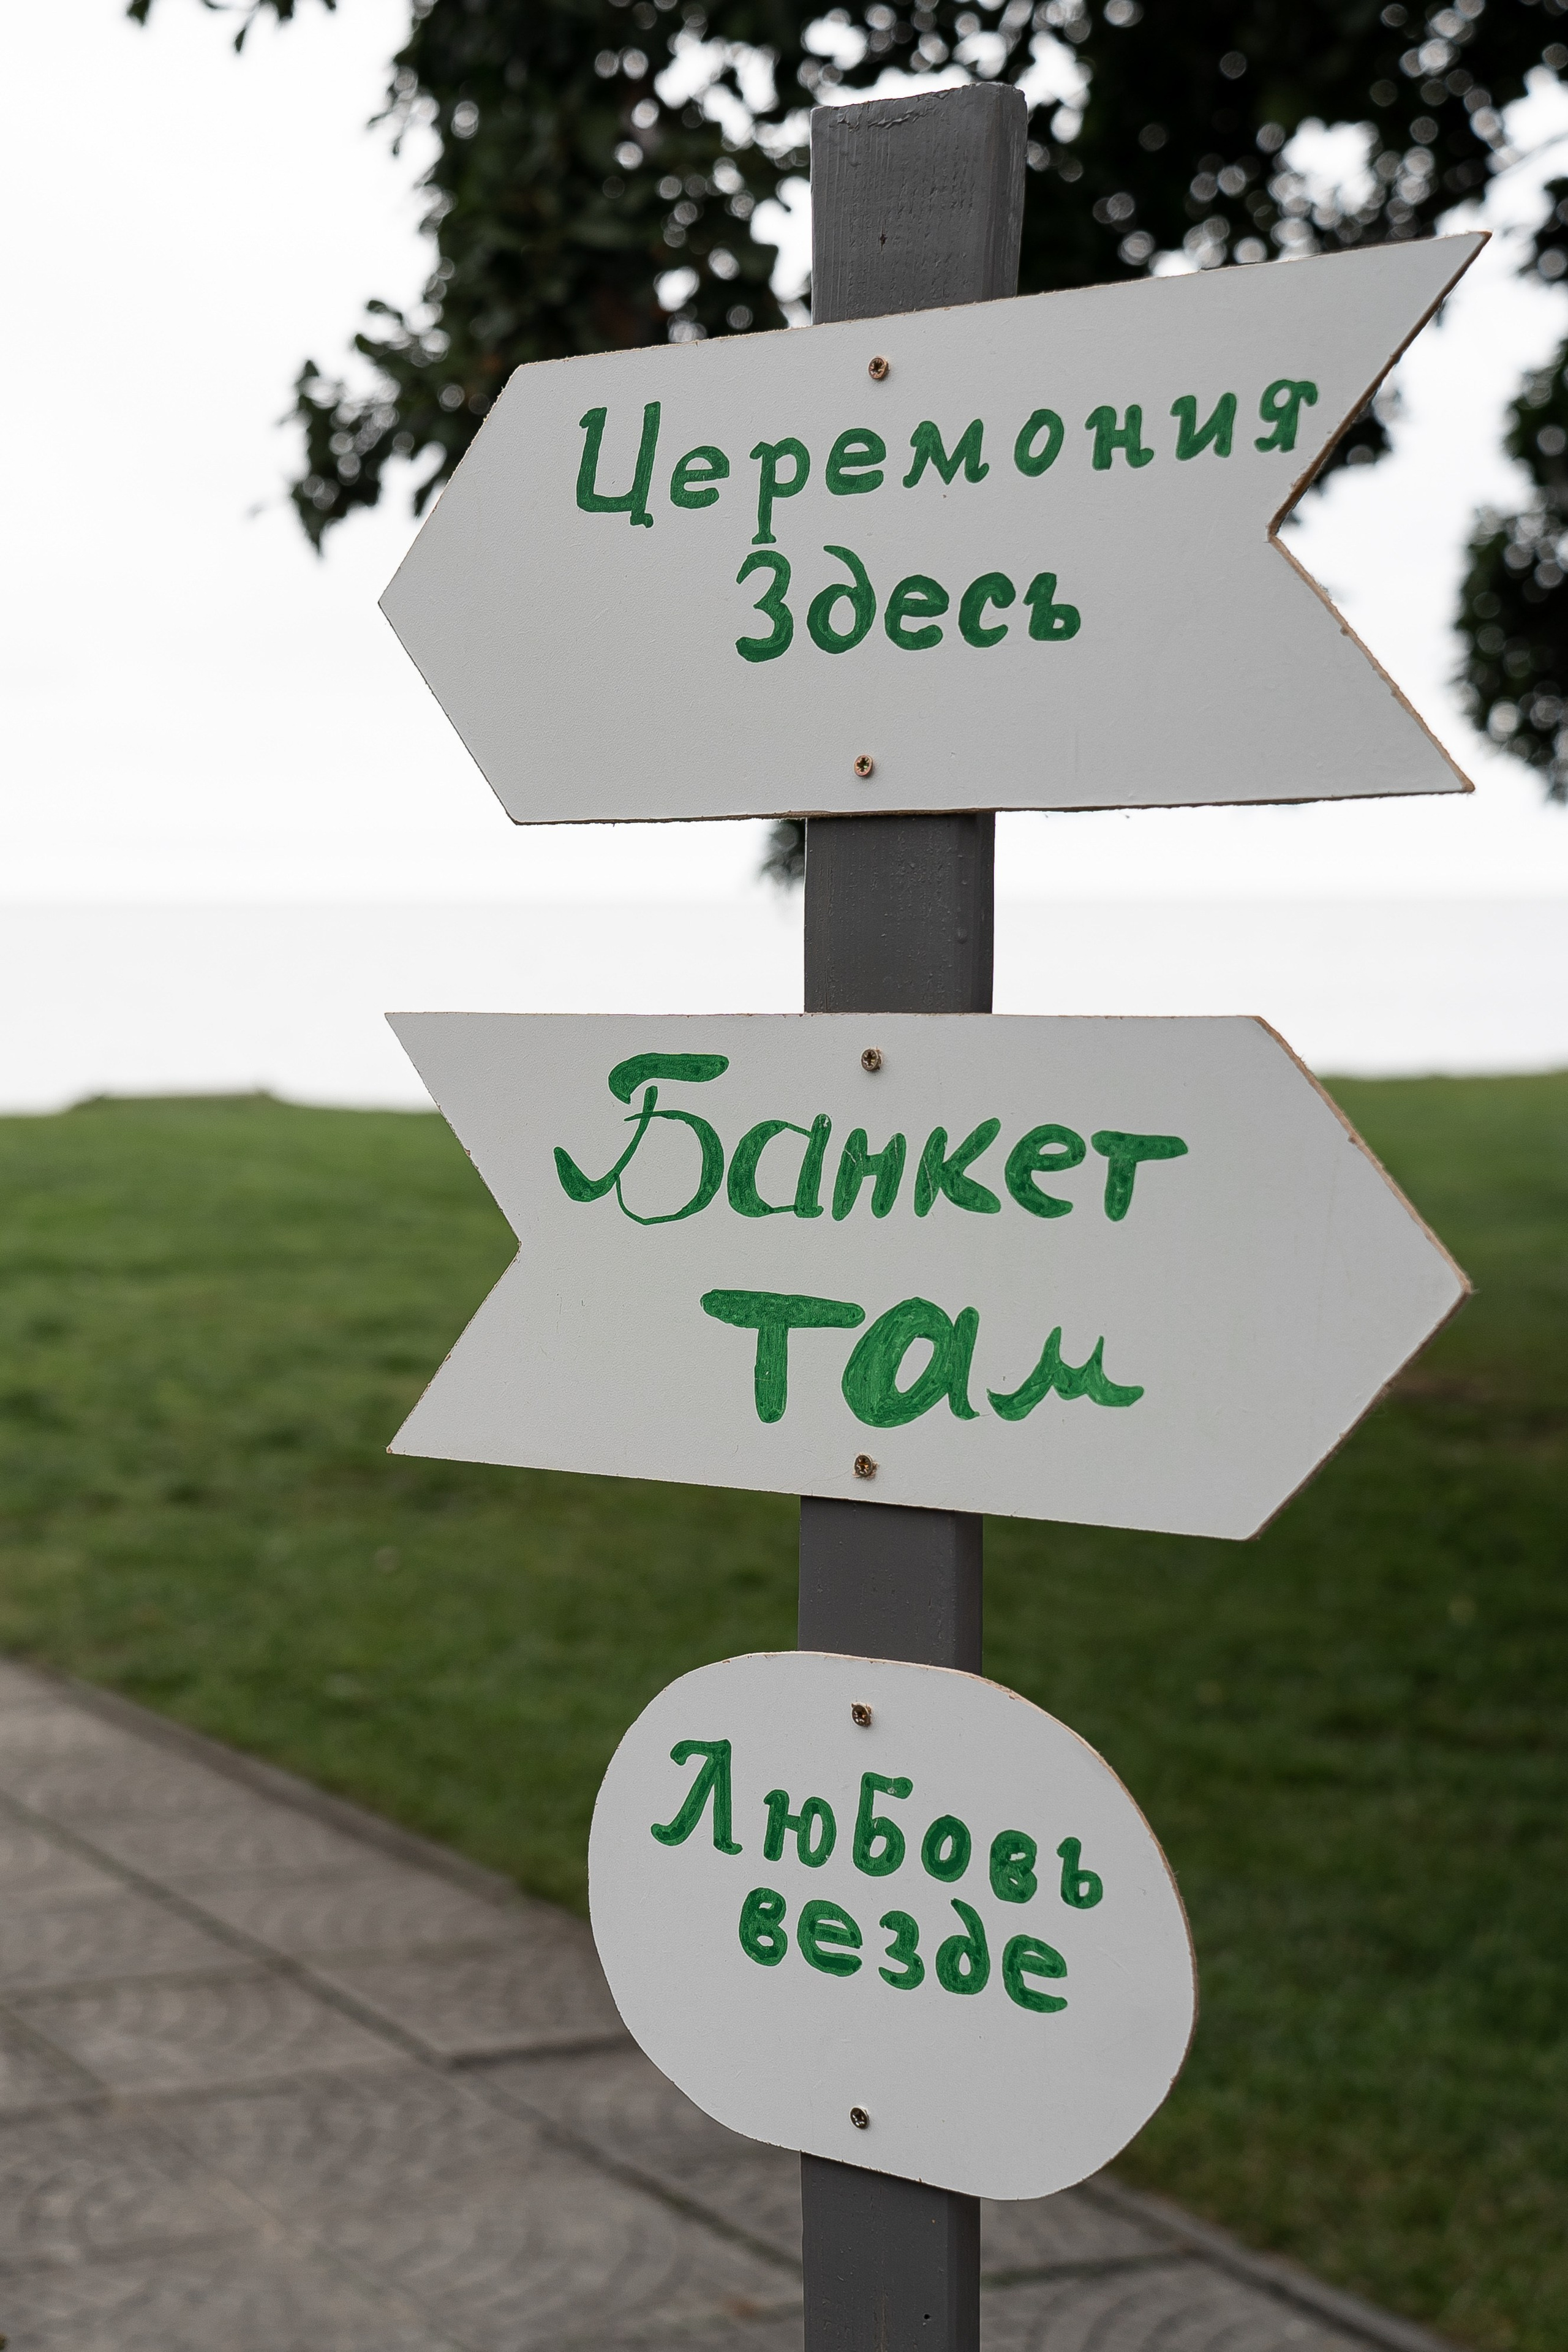 Церемония
Здесь
Банкет
там
Любовь
везде